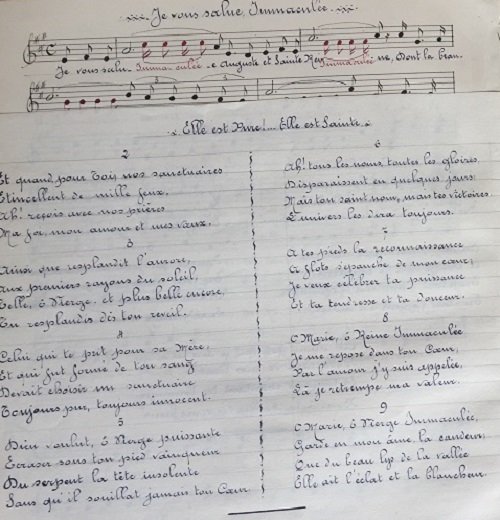 Je vous salue, Immaculée
Je vous salu Imma-culée e Auguste et Sainte Rei Immaculée ne, Dont la beau.
Elle est Pure!... Elle est Sainte
2
Et quand pour Toi, nos sanctuaires
Etincellent de mille feux,
Ah! reçois avec nos prières
Ma foi, mon amour et mes vœux.
3
Ainsi que resplendit l'aurore,
Aux premiers rayons du soleil,
Telle, ô Vierge, et plus belle encore,
Tu resplendis dès ton réveil.
4
Celui qui te prit pour sa Mère,
Et qui fut formé de ton sang
Devait choisir un sanctuaire
Toujours pur, toujours innocent.
5
Dieu voulut, ô Vierge puissante
Ecraser sous ton pied vainqueur
Du serpent la tête insolente
Sans qu'il souillât jamais ton Cœur.
6
Ah! tous les noms, toutes les gloires,
Disparaissent en quelques jours;
Mais ton saint nom, mais tes victoires
L'univers les dira toujours.
7
A tes pieds la reconnaissance
A flots s'épanche de mon cœur;
Je veux célébrer ta puissance
Et ta tendresse et ta douceur.
8
O Marie, ô Reine Immaculée
Je me repose dans ton Cœur,
Par l'amour j'y suis appelée,
Là je retrempe ma valeur.
9
O Marie, ô Vierge Immaculée,
Garde en mon âme la candeur;
Que du beau lys de la vallée
Elle ait l'éclat et la blancheur.